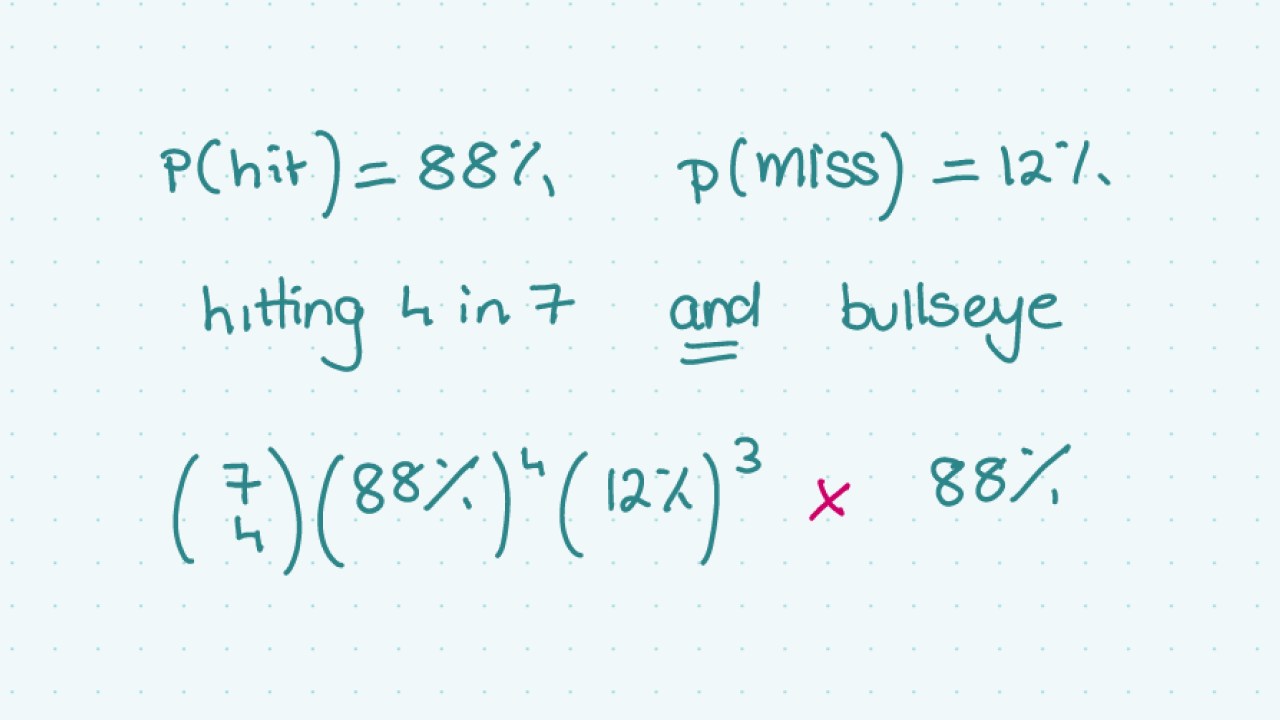 P(hit) = 88% p(miss) = 12%
hitting 4 in 7 and bullseye
(7 4)(88%)^4 (12%)^3 × 88%